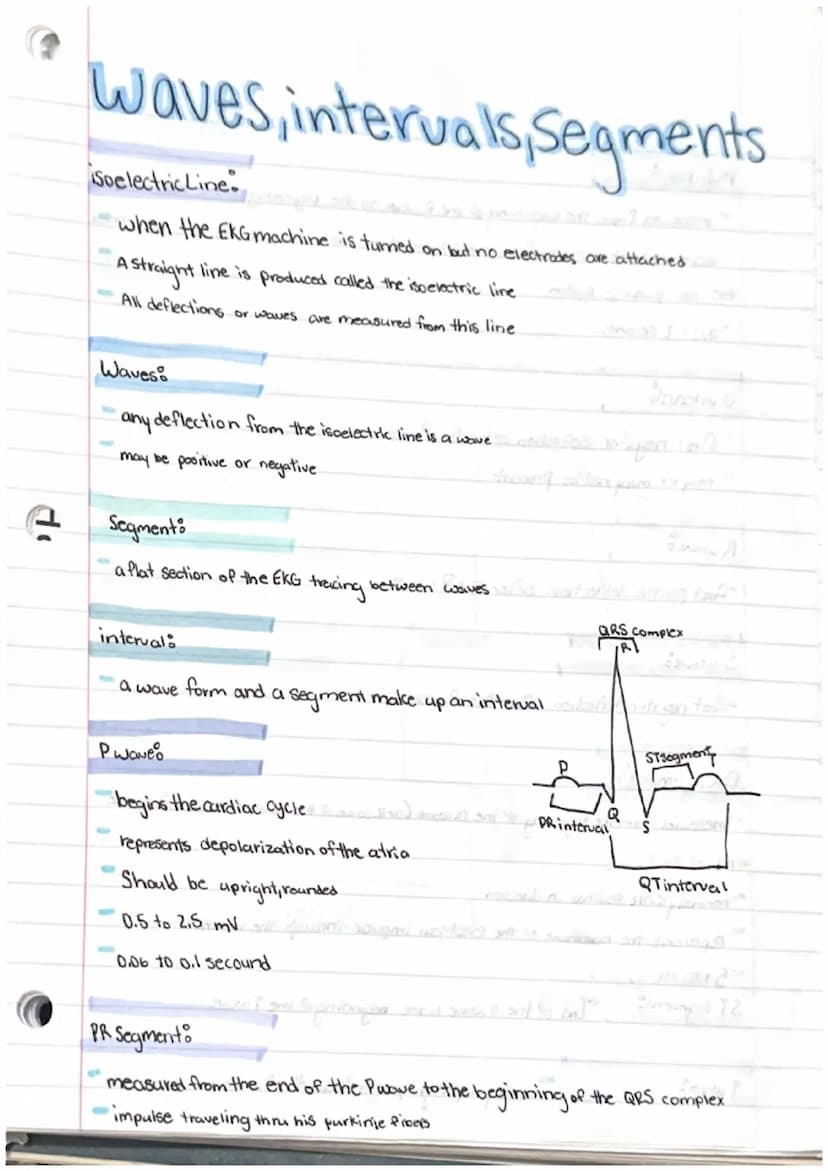 Waves, intervals, Segments
isoelectric Line:
when the EKG machine is turned on but no electrodes are attached
A straight line is produced called the isoelectric line
All deflections or waves are measured from this line
Waves:
any deflection from the isoelectric line is a wave
may be positive or negative
Segment:
a flat section of the EKG tracing between waves
interval:
a wave form and a segment make up an interval
QRS complex
R
P
ST segment
T
PR interval
Q
S
QT interval
P wave:
begins the cardiac cycle
represents depolarization of the atria
Should be upright, rounded
0.5 to 2.5 mV
0.06 to 0.1 secound
PR Segment:
measured from the end of the P wave to the beginning of the QRS complex
impulse traveling thru his purkinje fibers